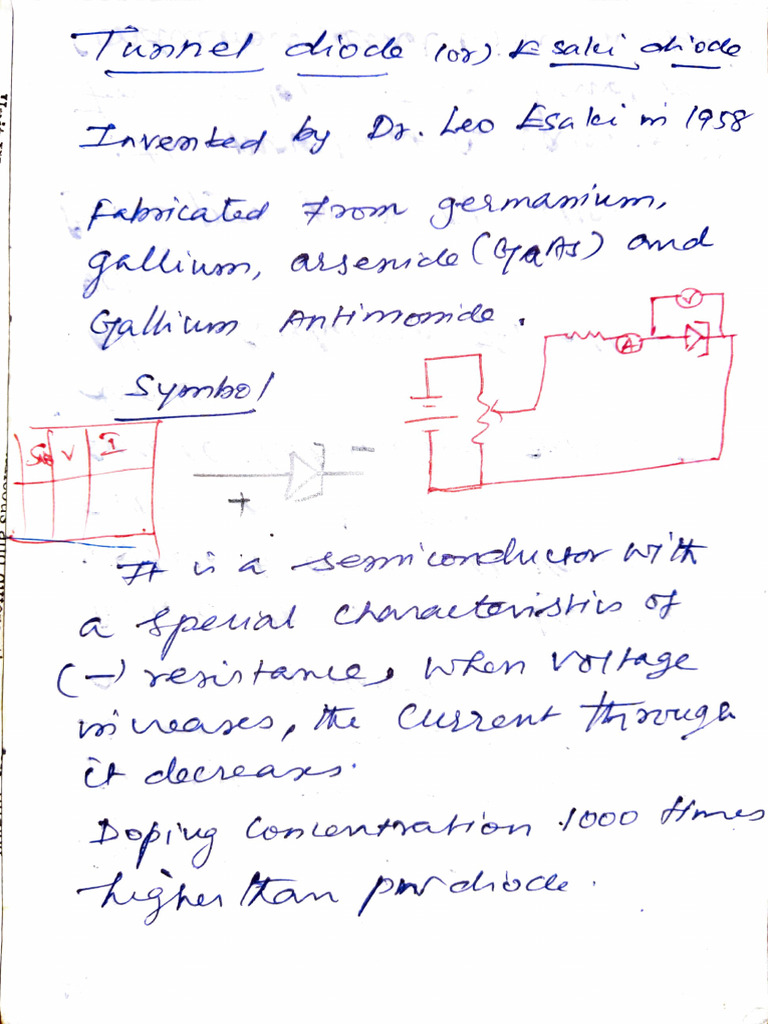 Tunnel diode (or) Esaki diode
Invented by Dr. Leo Esaki in 1958
Fabricated From germanium,
gallium, arsenide (GaAs) and
Gallium Antimonide.
V
A
Symbol
V I
+ -
It is a semiconductor with
a special characteristics of
(-) resistance, when voltage
increases, the current through
it decreases.
Doping concentration 1000 times
higher than pn diode.